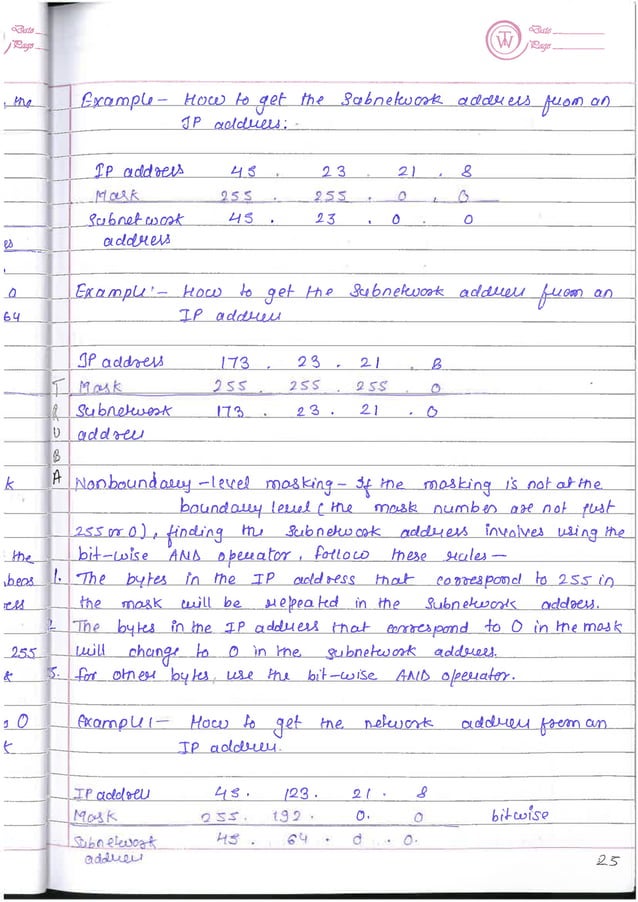 Date
Page
TW
Date
Page
, the
Example - How to get the Subnetwork address from an
IP address:-
IP address 45 . 23 . 21 . 8
Mask 255 . 255 . 0 . 0
Subnetwork 45 . 23 . 0 . 0
address
es
0
64
Example:- How to get the Subnetwork address from an
IP address
IP address 173 . 23 . 21 . 8
Mask 255 . 255 . 255 . 0
Subnetwork 173 . 23 . 21 . 0
address
T
R
U
B
A
k
Nonboundary-level masking- If the masking is not at the
boundary level (the mask number are not just
255 or 0), finding the subnetwork address involves using the
the
bit-wise AND operator, follow these rules-
bers
1. The bytes in the IP address that correspond to 255 in
ess
the mask will be repeated in the Subnetwork address.
2. The bytes in the IP address that correspond to 0 in the mask
255
will change to 0 in the subnetwork address.
3. for other bytes, use the bit-wise AND operator.
0
Example:- How to get the network address from an
IP address.
IP address 45 . 123 . 21 . 8
Mask 255 . 192 . 0 . 0 bitwise
Subnetwork 45 . 64 . 0 . 0.
address
25